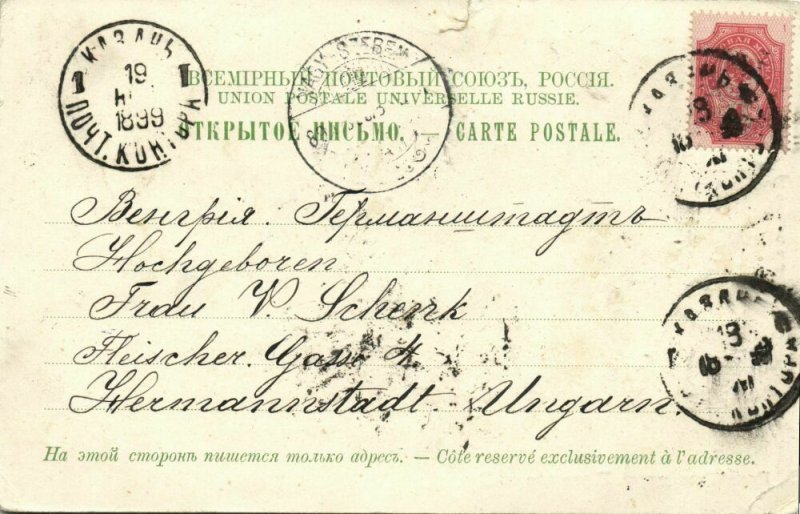 ВСЕМІРНЫЙ ПОЧТОВЫЙ СОЮЗЪ, РОССІЯ.
UNION POSTALE UNIVERSELLE RUSSIE.
ОТКРЫТОЕ ПИСЬМО. — CARTE POSTALE.
КАЗАНЬ
1 19 1
1899
ПОЧТ. КОНТОРА
NAGY-SZEBEN
Венгрія. Германштадтъ
Hochgeboren
Frau V. Schenk
Fleischer. Gasse 4.
Hermannstadt. Ungarn.
На этой сторонѣ пишется только адресъ. — Côte reservé exclusivement à l'adresse.